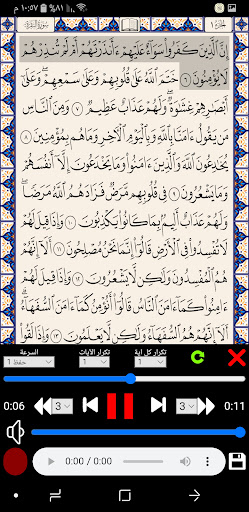 ١٠:٥٧ م ٨١%
الجزء ١ سورة البقرة
إِنَّ الَّذِينَ كَفَرُوا سَوَاءٌ عَلَيْهِمْ ءَأَنذَرْتَهُمْ أَمْ لَمْ تُنذِرْهُمْ
لَا يُؤْمِنُونَ ٦ خَتَمَ اللَّهُ عَلَىٰ قُلُوبِهِمْ وَعَلَىٰ سَمْعِهِمْ ۖ وَعَلَىٰ
أَبْصَٰرِهِمْ غِشَٰوَةٌ ۖ وَلَهُمْ عَذَابٌ عَظِيمٌ ٧ وَمِنَ النَّاسِ
مَن يَقُولُ ءَامَنَّا بِاللَّهِ وَبِالْيَوْمِ الْآخِرِ وَمَا هُم بِمُؤْمِنِينَ ٨
يُخَٰدِعُونَ اللَّهَ وَالَّذِينَ ءَامَنُوا وَمَا يَخْدَعُونَ إِلَّا أَنفُسَهُمْ
وَمَا يَشْعُرُونَ ٩ فِي قُلُوبِهِم مَّرَضٌ فَزَادَهُمُ اللَّهُ مَرَضًا ۖ
وَلَهُمْ عَذَابٌ أَلِيمٌ بِمَا كَانُوا يَكْذِبُونَ ١٠ وَإِذَا قِيلَ لَهُمْ
لَا تُفْسِدُوا فِي الْأَرْضِ قَالُوا إِنَّمَا نَحْنُ مُصْلِحُونَ ١١ أَلَا إِنَّهُمْ
هُمُ الْمُفْسِدُونَ وَلَٰكِن لَّا يَشْعُرُونَ ١٢ وَإِذَا قِيلَ لَهُمْ
ءَامِنُوا كَمَا ءَامَنَ النَّاسُ قَالُوا أَنُؤْمِنُ كَمَا ءَامَنَ السُّفَهَاءُ ۗ
أَلَا إِنَّهُمْ هُمُ السُّفَهَاءُ وَلَٰكِن لَّا يَعْلَمُونَ ١٣ وَإِذَا لَقُوا
السرعة تكرار الآيات تكرار كل اية
حفظ 1 1 1
0:06 3 3 0:11
0:00 / 0:00